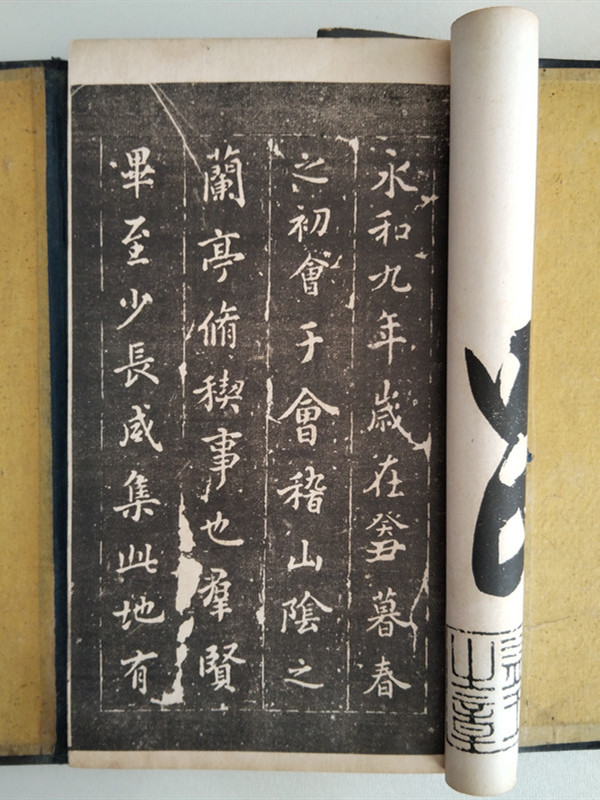 永和九年歲在癸丑暮春
之初會于會稽山陰之
蘭亭脩稧事也群賢
畢至少長咸集此地有